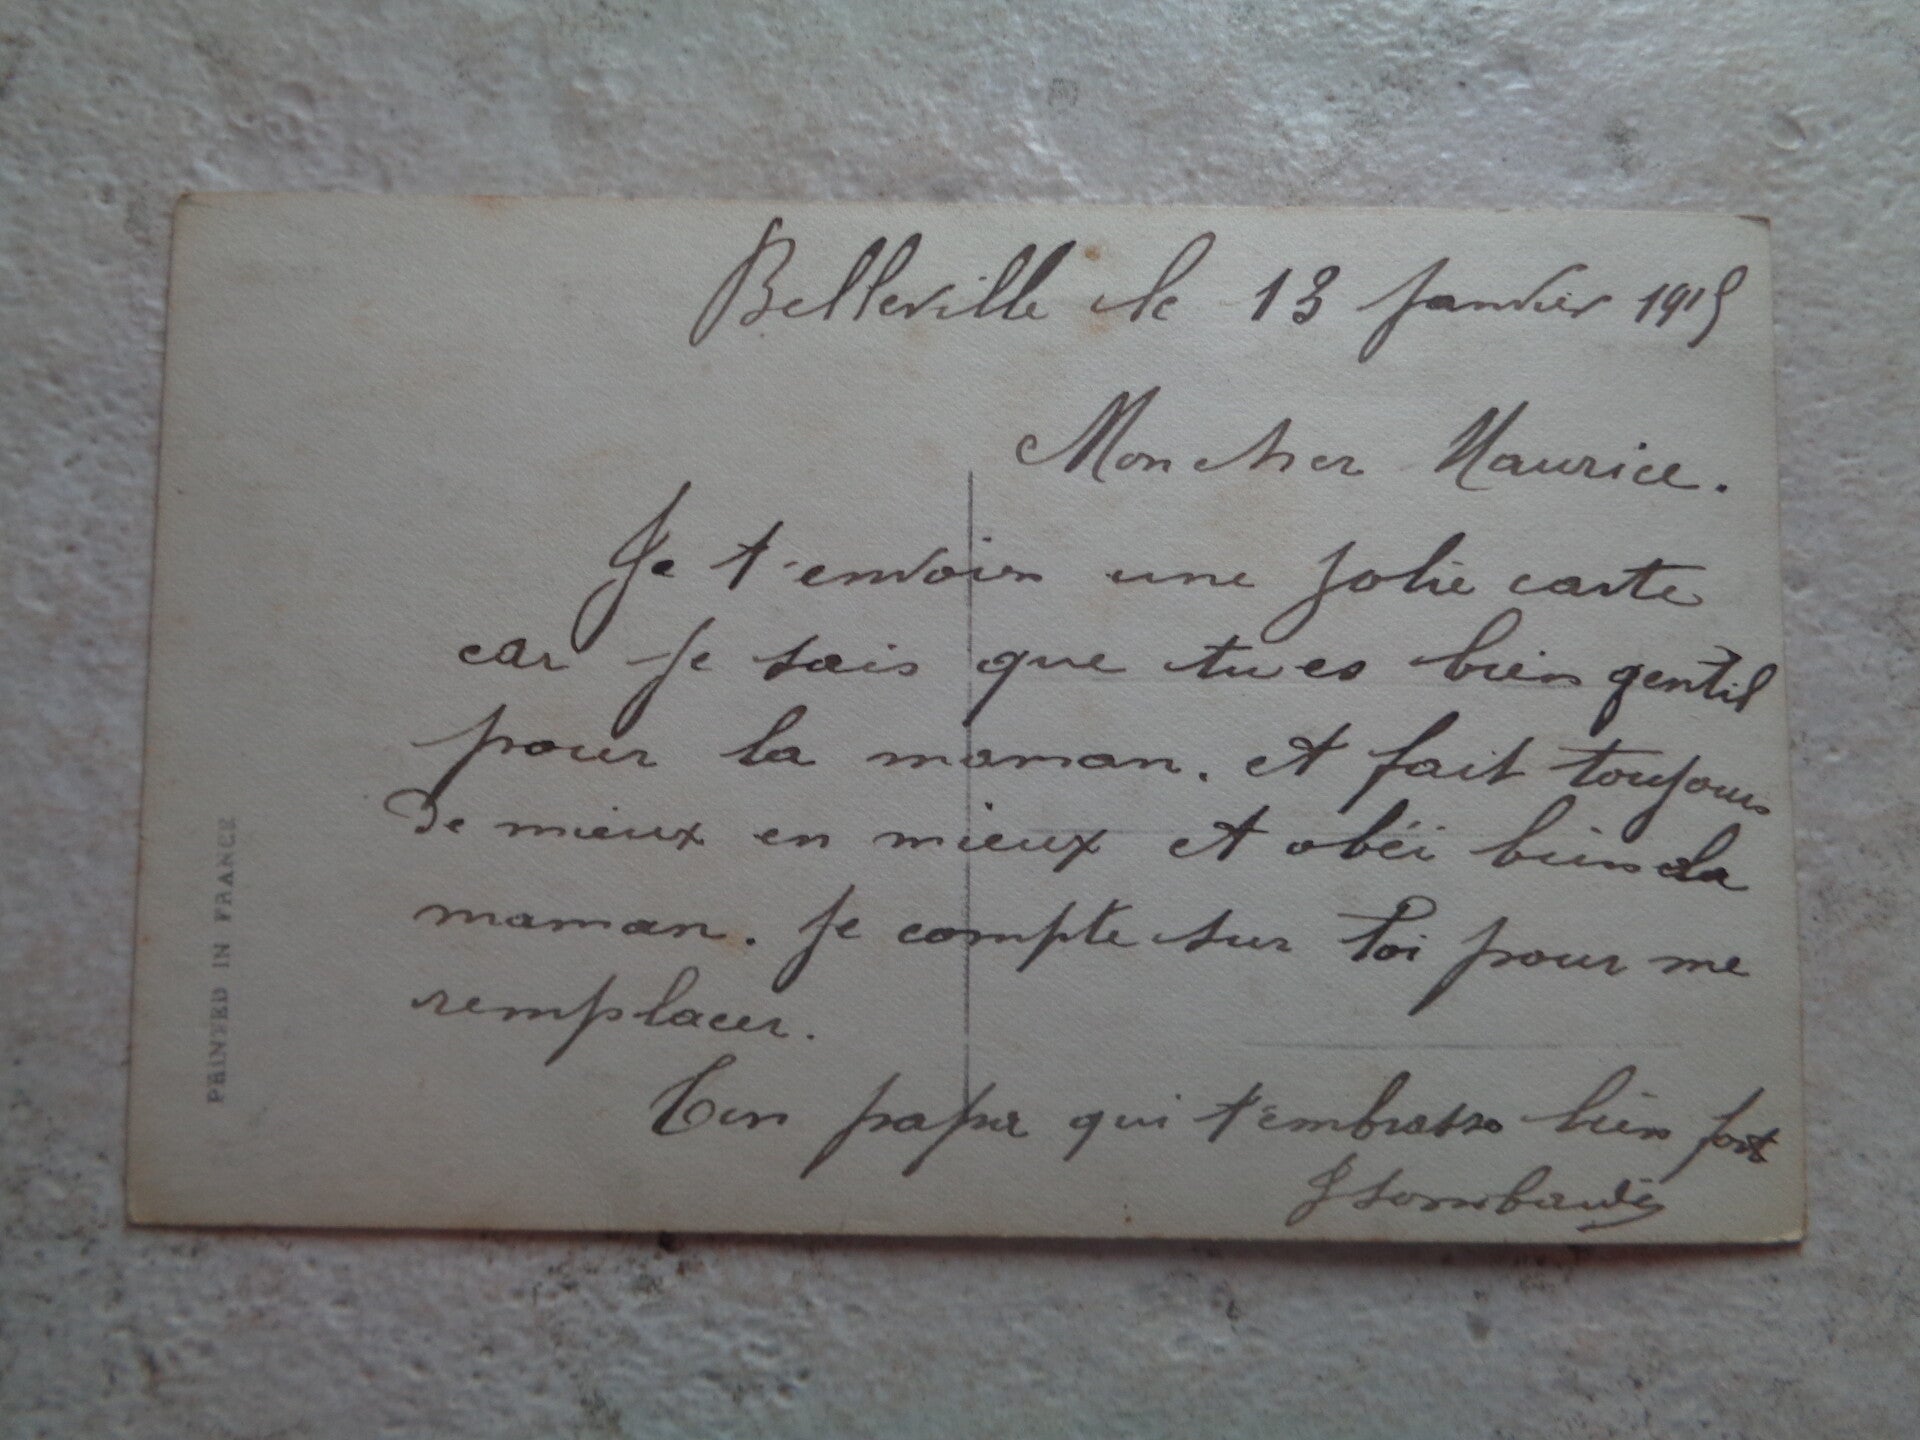 Belleville le 13 janvier 1915
Mon cher Maurice.
Je t'envoies une jolie carte
car je sais que tu es bien gentil
pour la maman. et fait toujours
de mieux en mieux et obéi bien la
maman. je compte sur toi pour me
remplacer.
Ton papa qui t'embrasse bien fort
PRINTED IN FRANCE